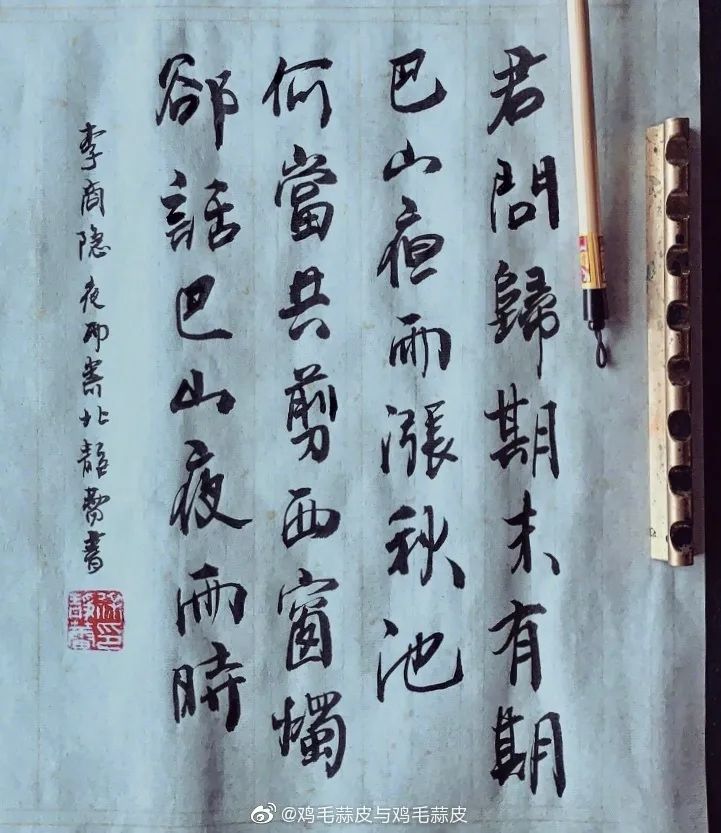 君問歸期未有期
巴山夜雨漲秋池
何當共剪西窗燭
卻話巴山夜雨時
李商隐夜雨寄北靜蕾書
徐靜蕾印
@鸡毛蒜皮与鸡毛蒜皮